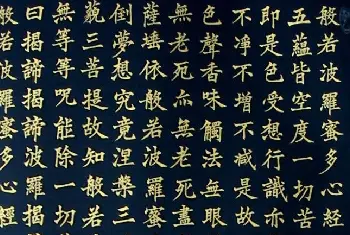 般若波羅蜜多心経
五蘊皆空度一切苦
即是色受想行識亦
不淨不增不減是故
色聲香味觸法無眼
無老死亦無老死盡
薩埵依般若波羅蜜
倒夢想究竟涅槃三
藐三菩提故知般若
無等等呪能除一切
曰揭諦揭諦波羅揭
般若波羅蜜多心經